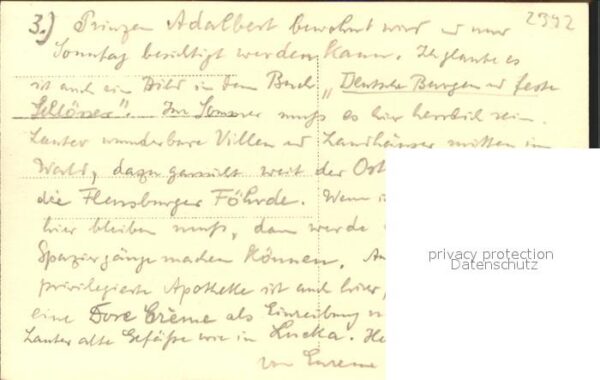 2392
3.) Prinzen Adalbert bewohnt wird u nur
Sonntag besichtigt werden kann. Ich glaube es
ist auch ein Bild in dem Buch „Deutsche Burgen u feste
Schlösser". Im Sommer muß es hier herrlich sein.
Lauter wunderbare Villen u Landhäuser mitten im
Wald, dazu weit der Ost
die Flensburger Föhrde. Wenn i
hier bleiben muß, dann werde
Spaziergänge machen können. An
privilegierte Apotheke ist auch hier,
eine Dore Crème als Einreibung
Lauter alte Gefäße wie in Lucka. He
von
privacy protection
Datenschutz